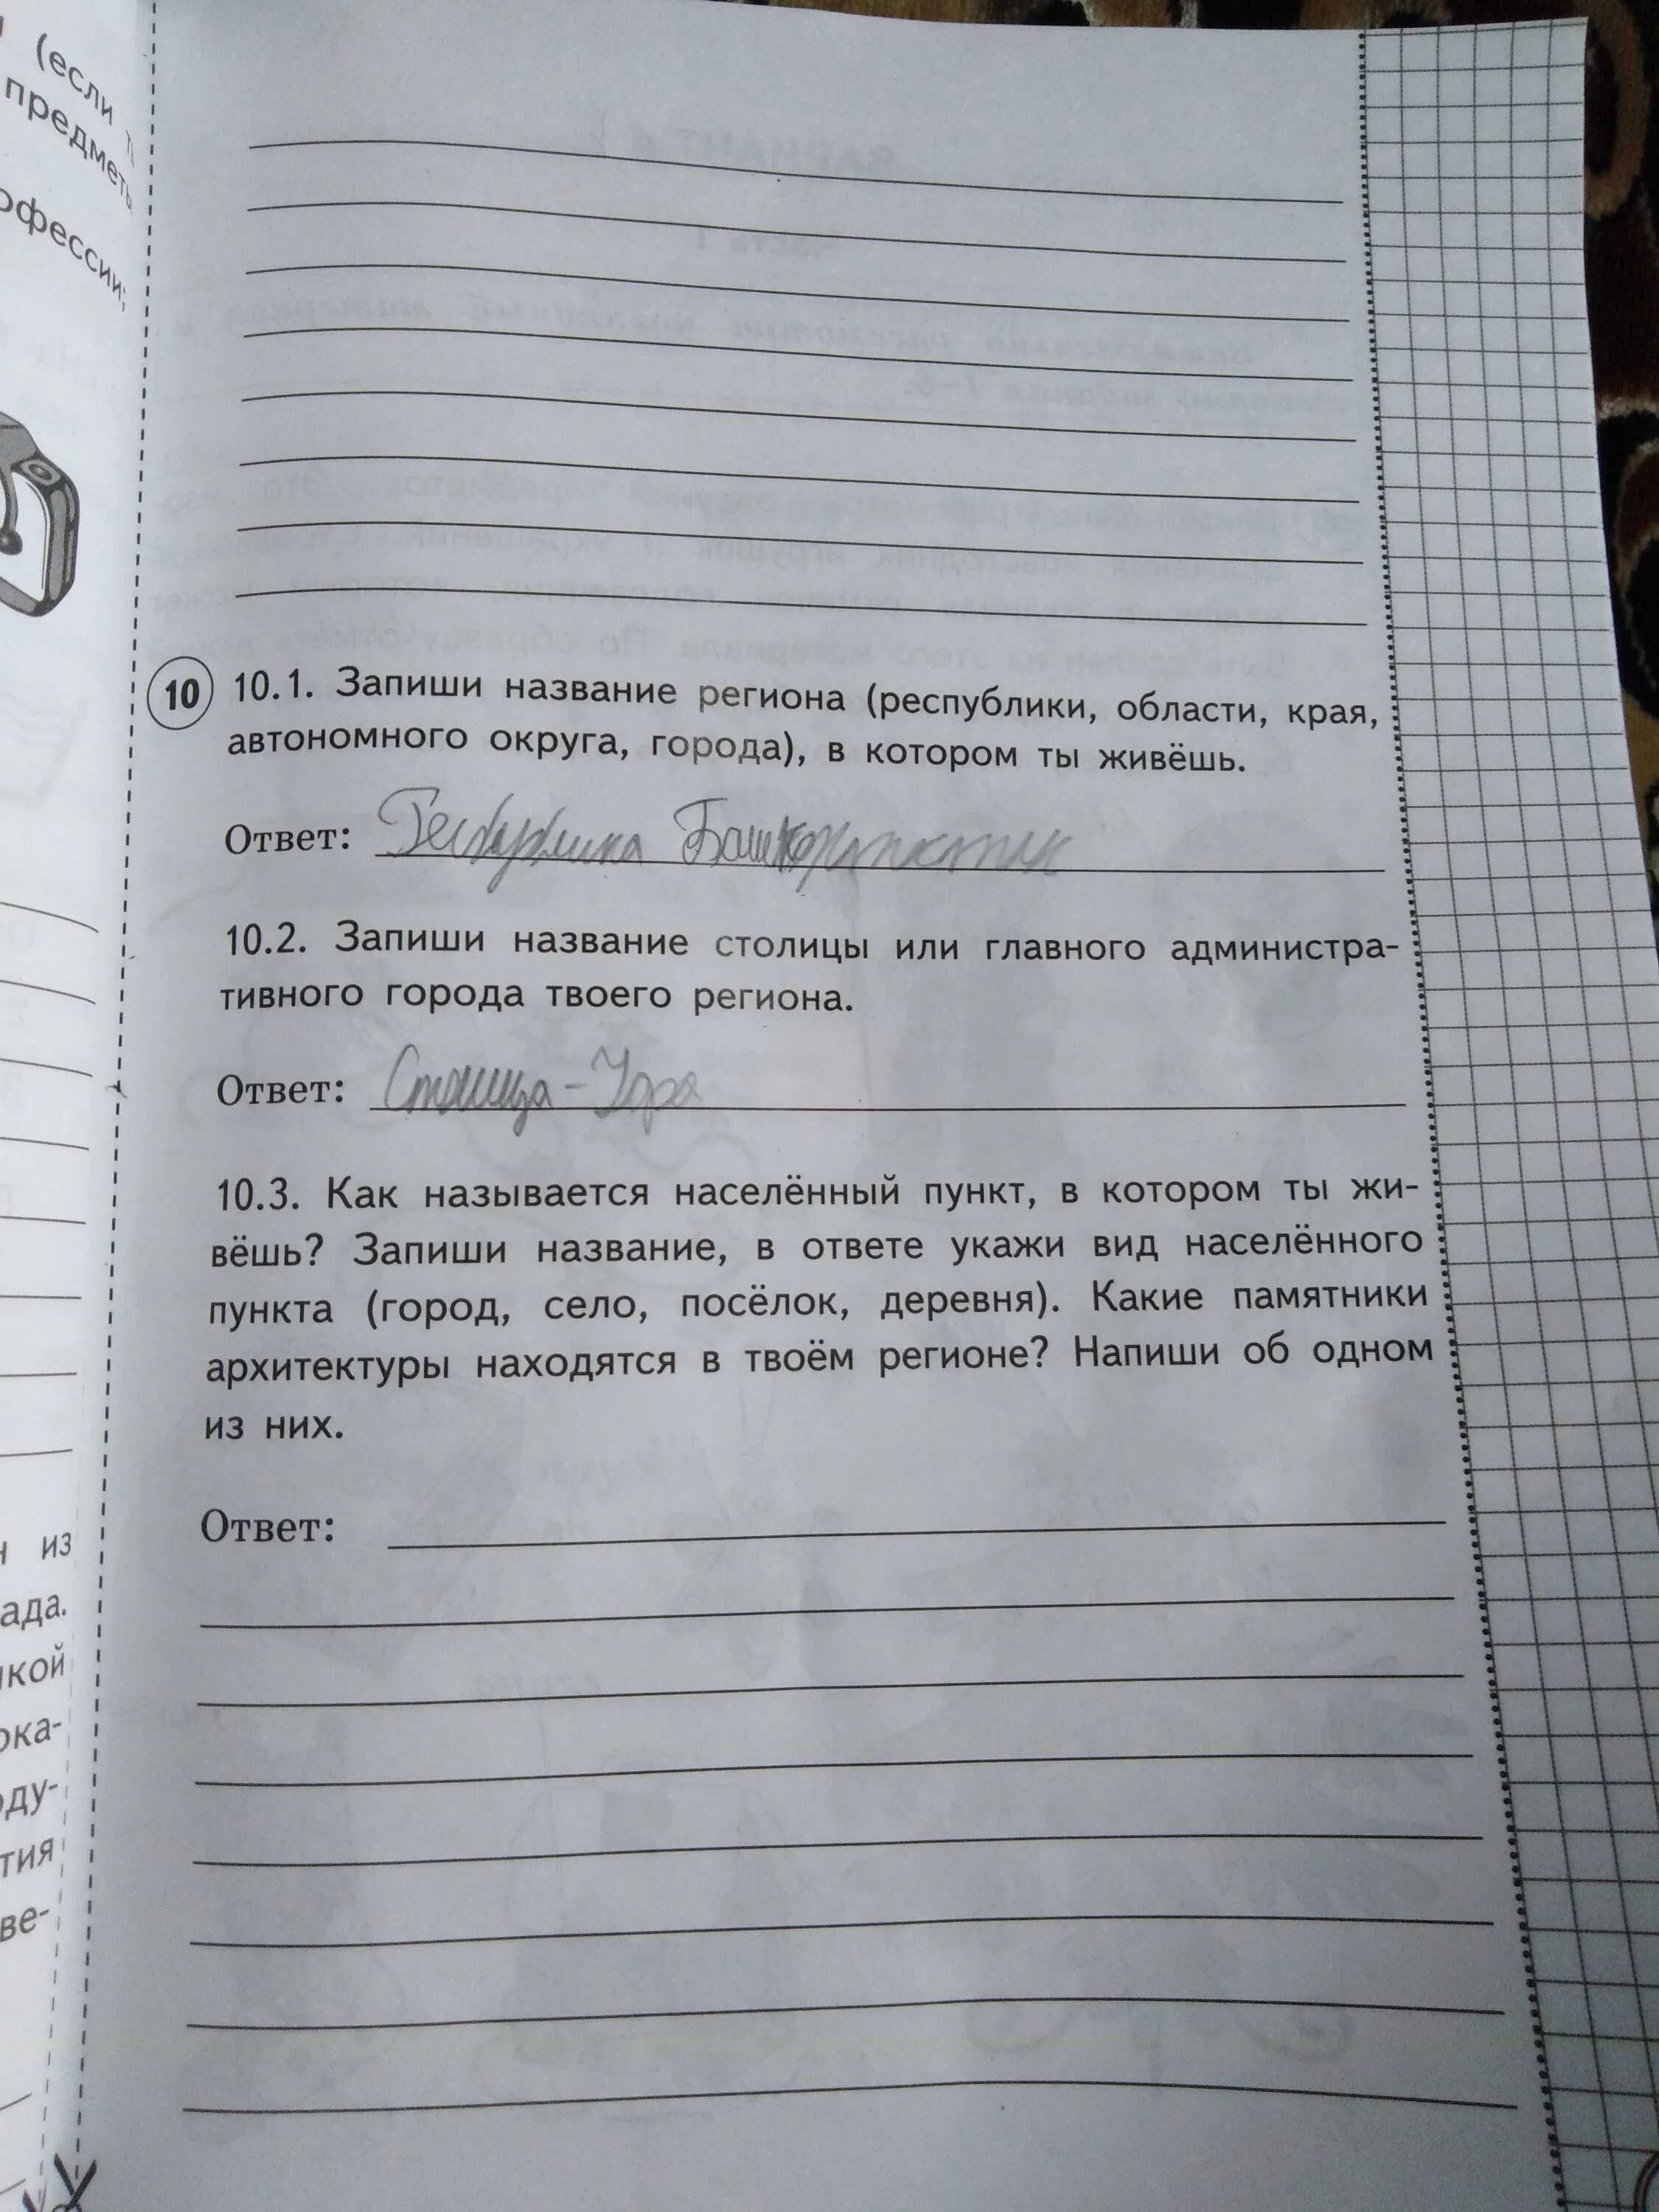 (если
предметы
офессии;
10 10.1. Запиши название региона (республики, области, края,
автономного округа, города), в котором ты живёшь.
Ответ: Республика Башкортостан
10.2. Запиши название столицы или главного администра-
тивного города твоего региона.
Ответ: Столица - Уфа
10.3. Как называется населённый пункт, в котором ты жи-
вёшь? Запиши название, в ответе укажи вид населённого
пункта (город, село, посёлок, деревня). Какие памятники
архитектуры находятся в твоём регионе? Напиши об одном
из них.
Ответ:
из
ада.
кой
ока-
оду-
тия
ве-